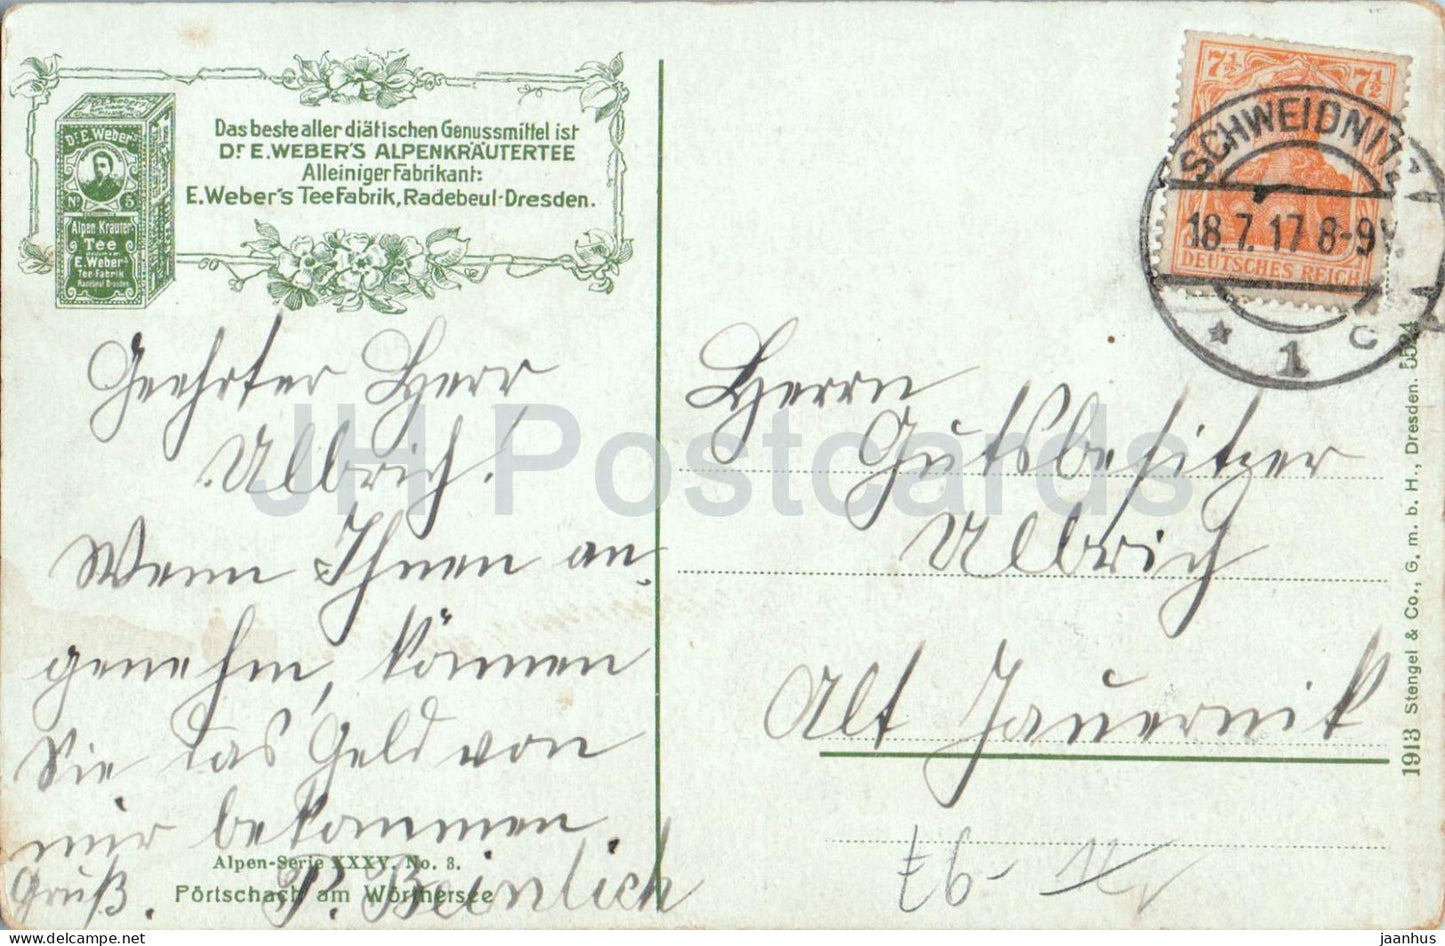 Das beste aller diätischen Genussmittel ist
Dr E. WEBER'S ALPENKRÄUTERTEE
Alleiniger Fabrikant:
E. Weber's TeeFabrik, Radebeul-Dresden.
Dr E. Weber's
No 5
Alpen-Kräuter
Tee
E. Weber's
Tee-Fabrik
Radebeul-Dresden
7½ 7½
DEUTSCHES REICH
SCHWEIDNITZ
18.7.17 8-9V.
* 1 c
Geehrter Herr
Ulbrich!
Wenn Ihnen an-
genehm, können
Sie das Geld von
mir bekommen.
Gruß. P. Beinlich
Alpen-Serie XXXV. No. 3.
Pörtschach am Wörthersee
Herrn
Gutsbesitzer
Ulbrich
Alt Jauernik
1913 Stengel & Co., G. m. b. H., Dresden. 5524
JH Postcards
www.delcampe.net
jaanhus